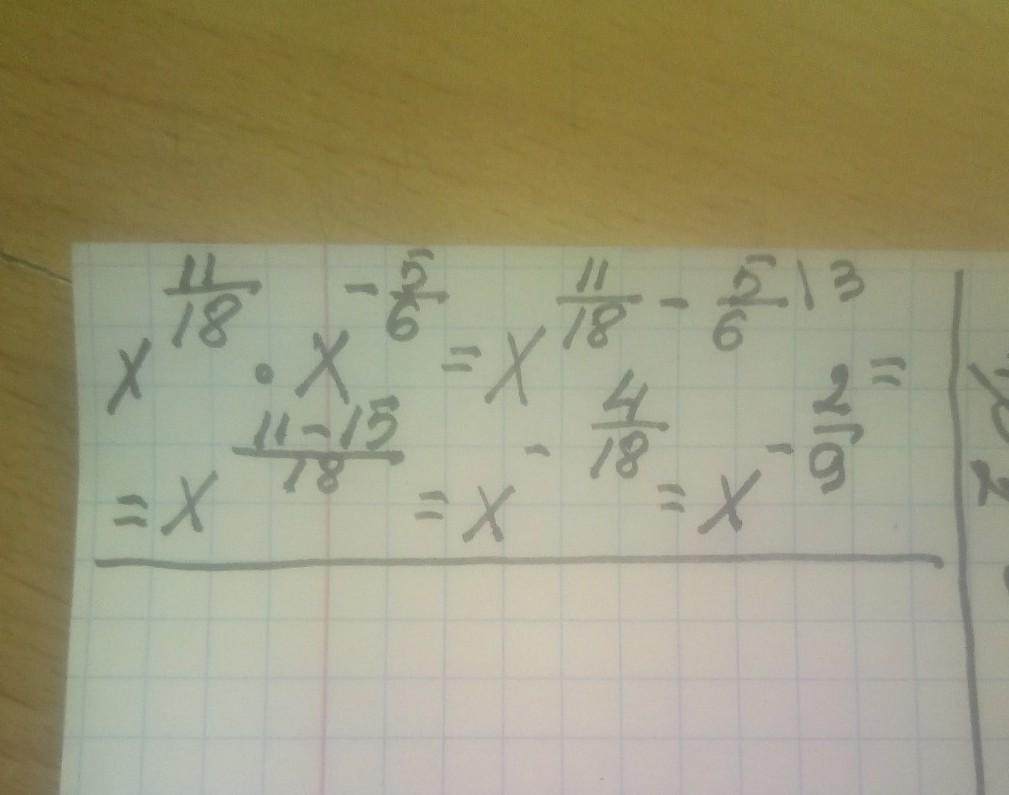 x^{\frac{11}{18}} \cdot x^{-\frac{5}{6}} = x^{\frac{11}{18} - \frac{5}{6} \backslash 3} =
= x^{\frac{11-15}{18}} = x^{-\frac{4}{18}} = x^{-\frac{2}{9}}